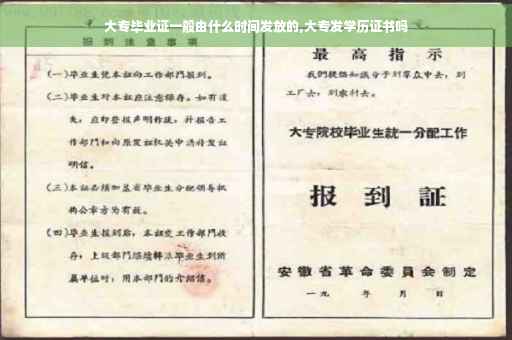 大专毕业证一般由什么时间发放的,大专发学历证书吗
报到注意事项
(一)毕业生凭本证向工作部门报到。
(二)毕业生对本证应注意保存。如有遗
失,应即登报声明作废,并报告工
作部门和向原发证机关申请补发证
明信。
(三)本证必须加盖省毕业生分配领导机
构公章方为有效。
(四)毕业生报到后,本证交工作部门收
存;上级部门继续转派毕业生到所
属单位时,用本部门的介绍信。
最高指示
我们提倡知识分子到羣众中去,到
工厂去,到农村去。
大专院校毕业生統一分配工作
报到証
安徽省革命委員会制定
一九 年 月 日